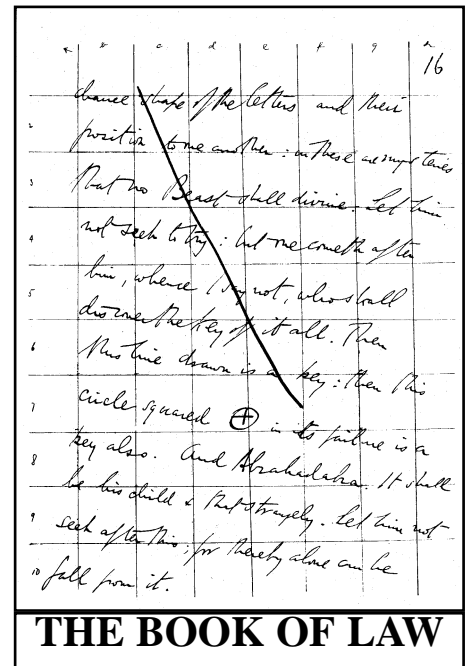 a b c d e f g h
16
chance shape of the letters and their
2
position to one another: in these are mysteries
3
that no Beast shall divine. Let him
4
not seek to try: but one cometh after
him, whence I say not, who shall
5
discover the Key of it all. Then
6
this line drawn is a key: then this
7
circle squared in its failure is a
key also. And Abrahadabra. It shall
8
be his child & that strangely. Let him not
9
seek after this; for thereby alone can he
10
fall from it.
THE BOOK OF LAW